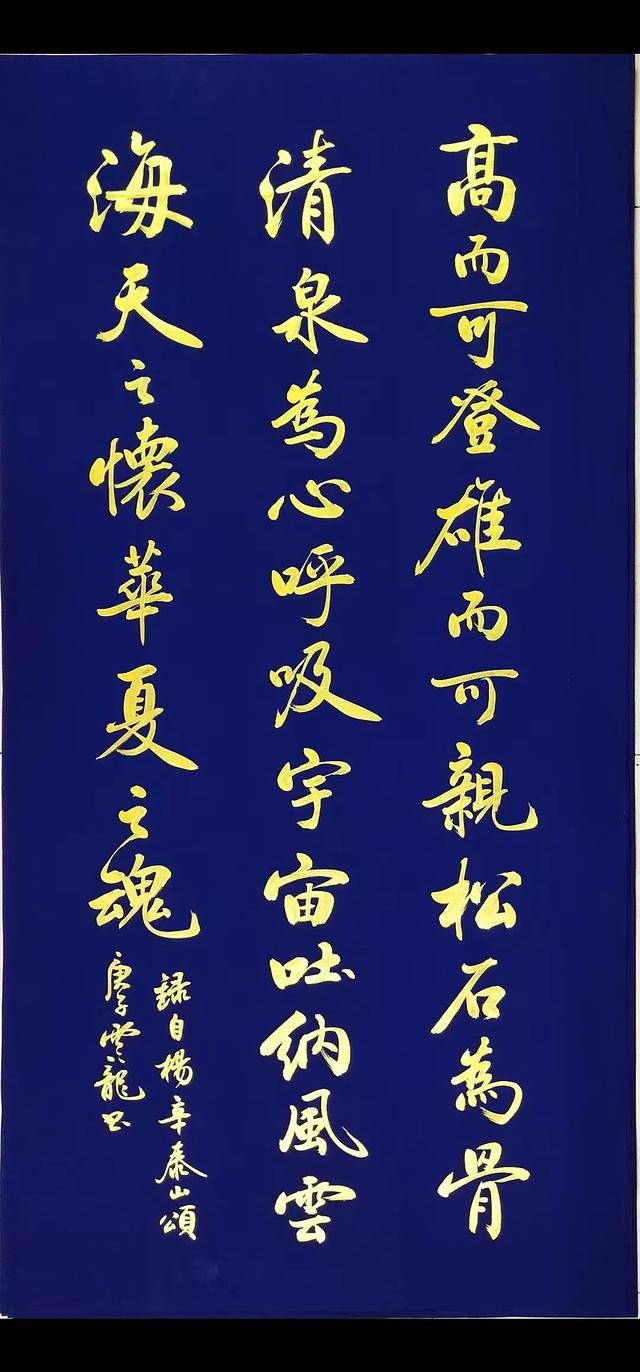 高而可登雄而可親松石為骨
清泉為心呼吸宇宙吐納風雲
海天之懷華夏之魂
録自楊辛泰山頌
庚子雲龍书